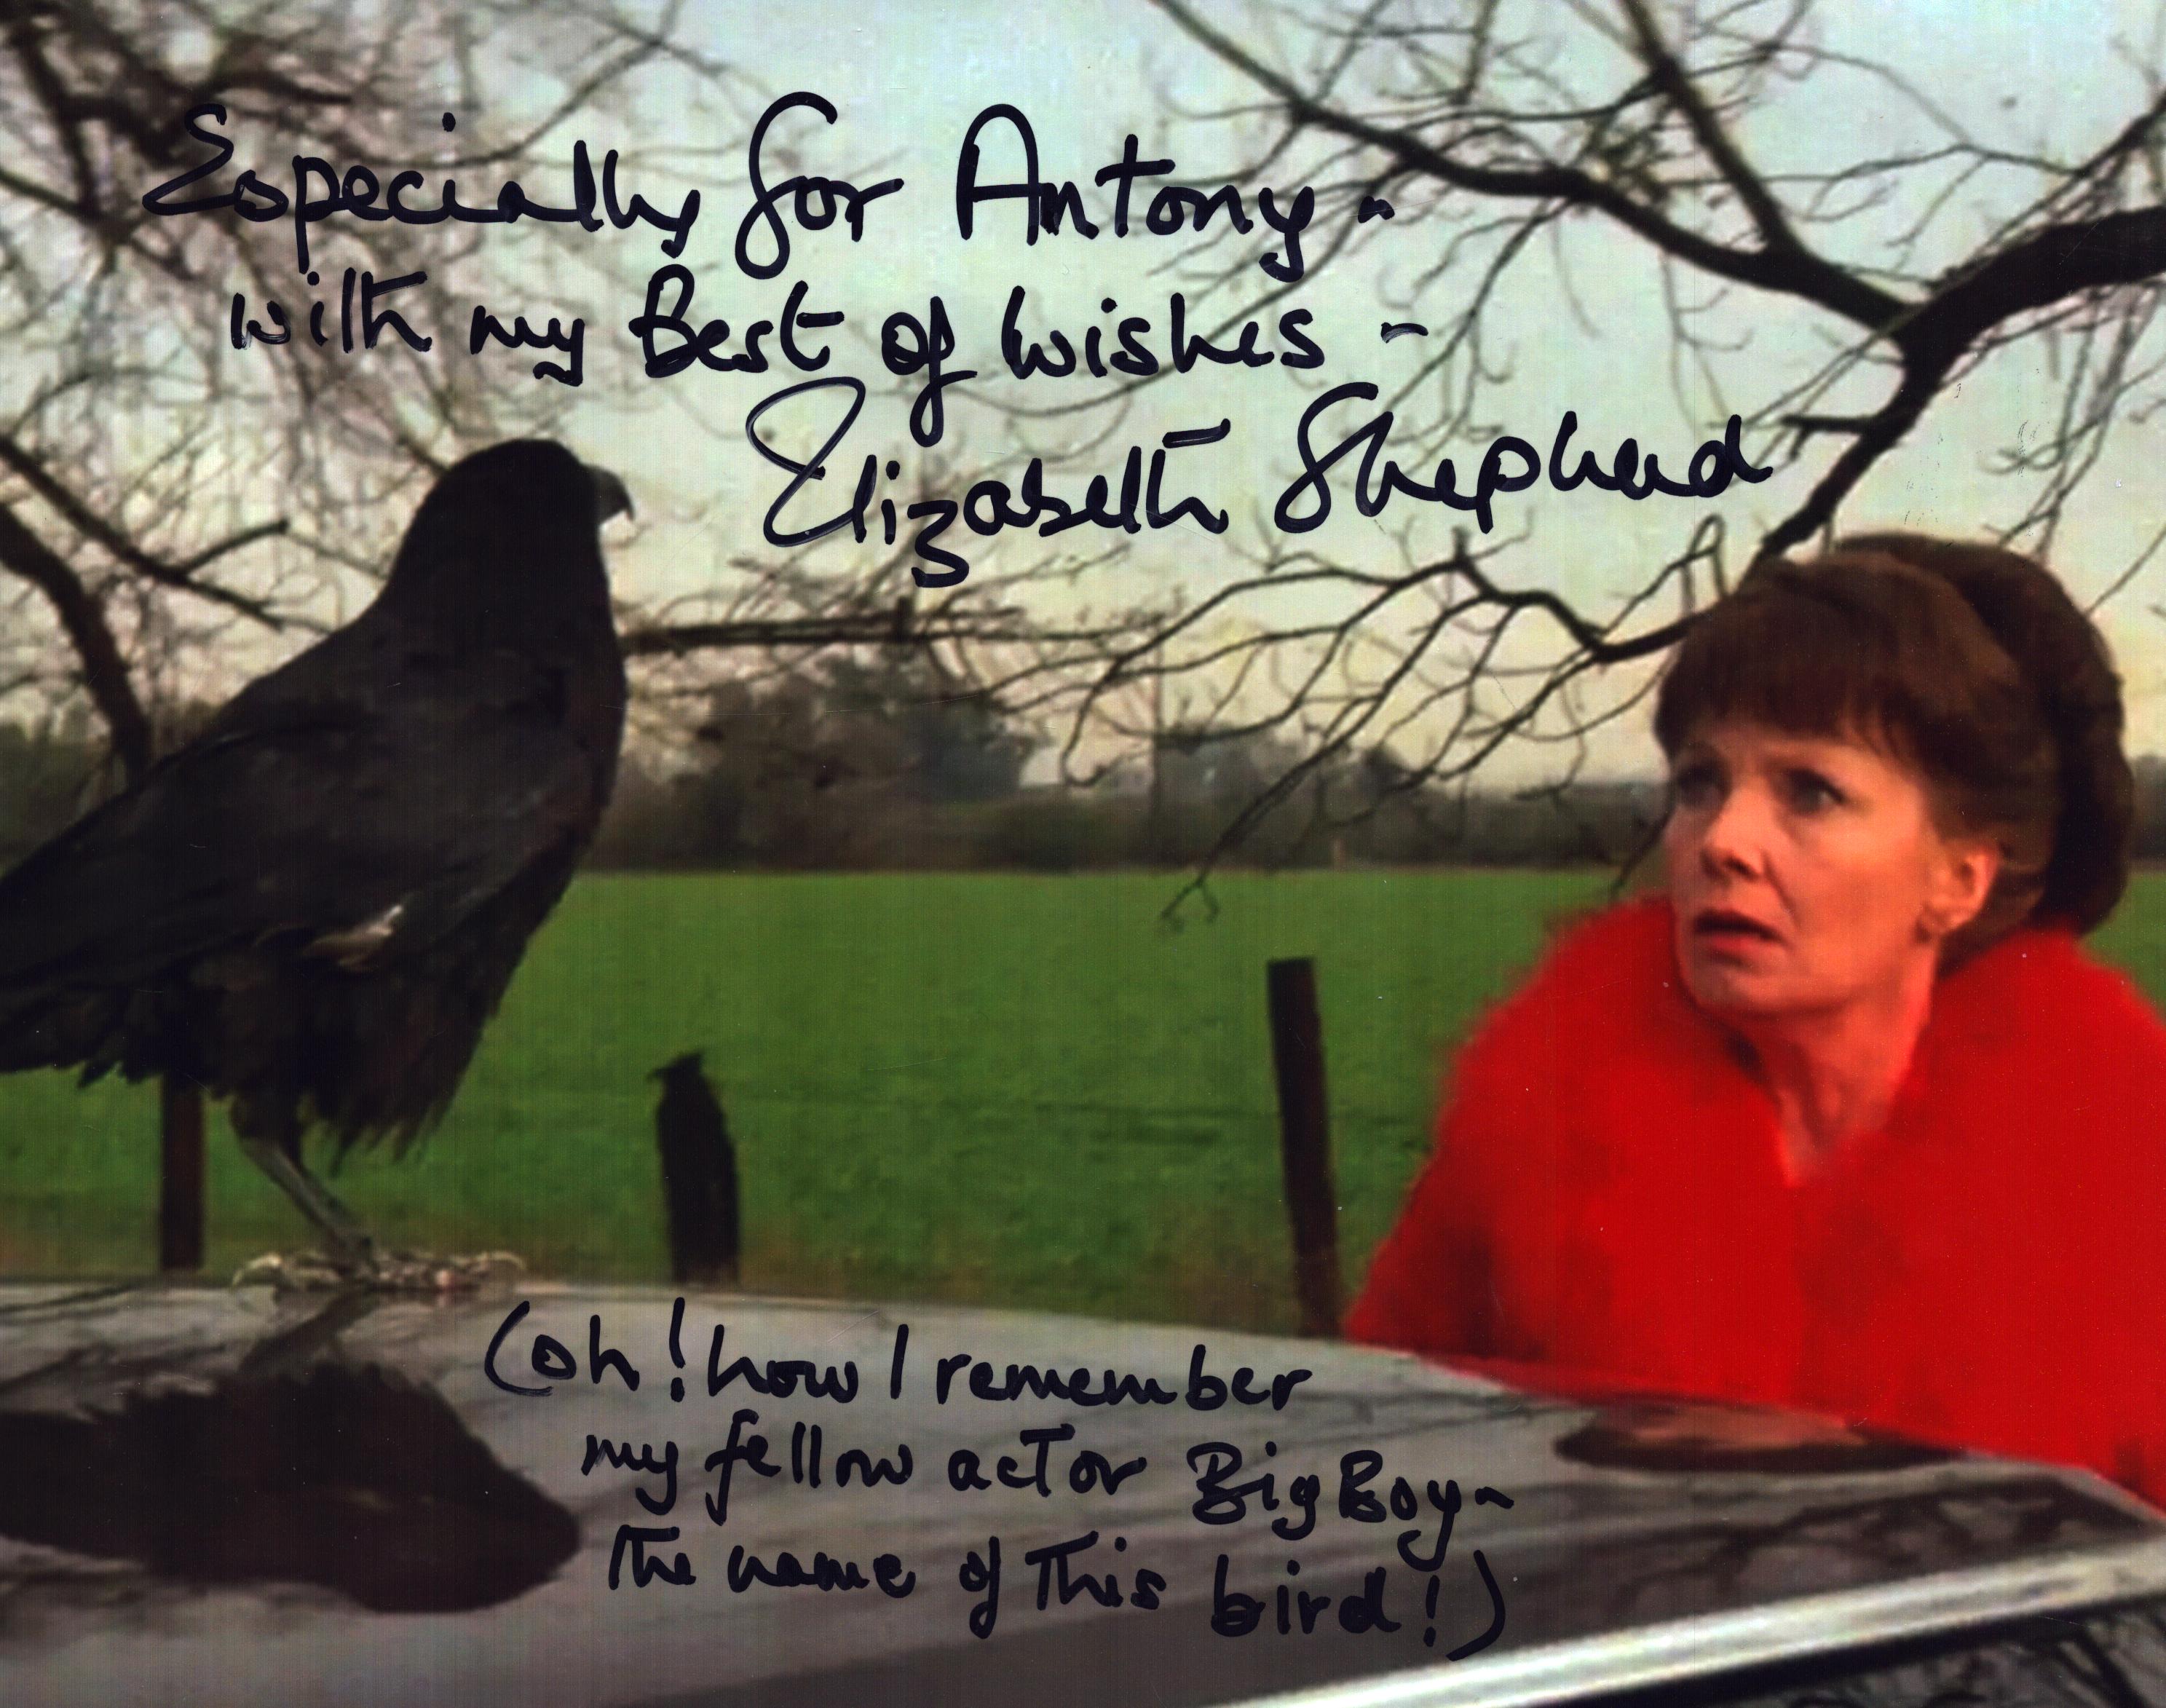 Especially for Antony -
with my Best of wishes -
Elizabeth Shepherd
(oh! how I remember
my fellow actor Big Boy -
the name of this bird!)